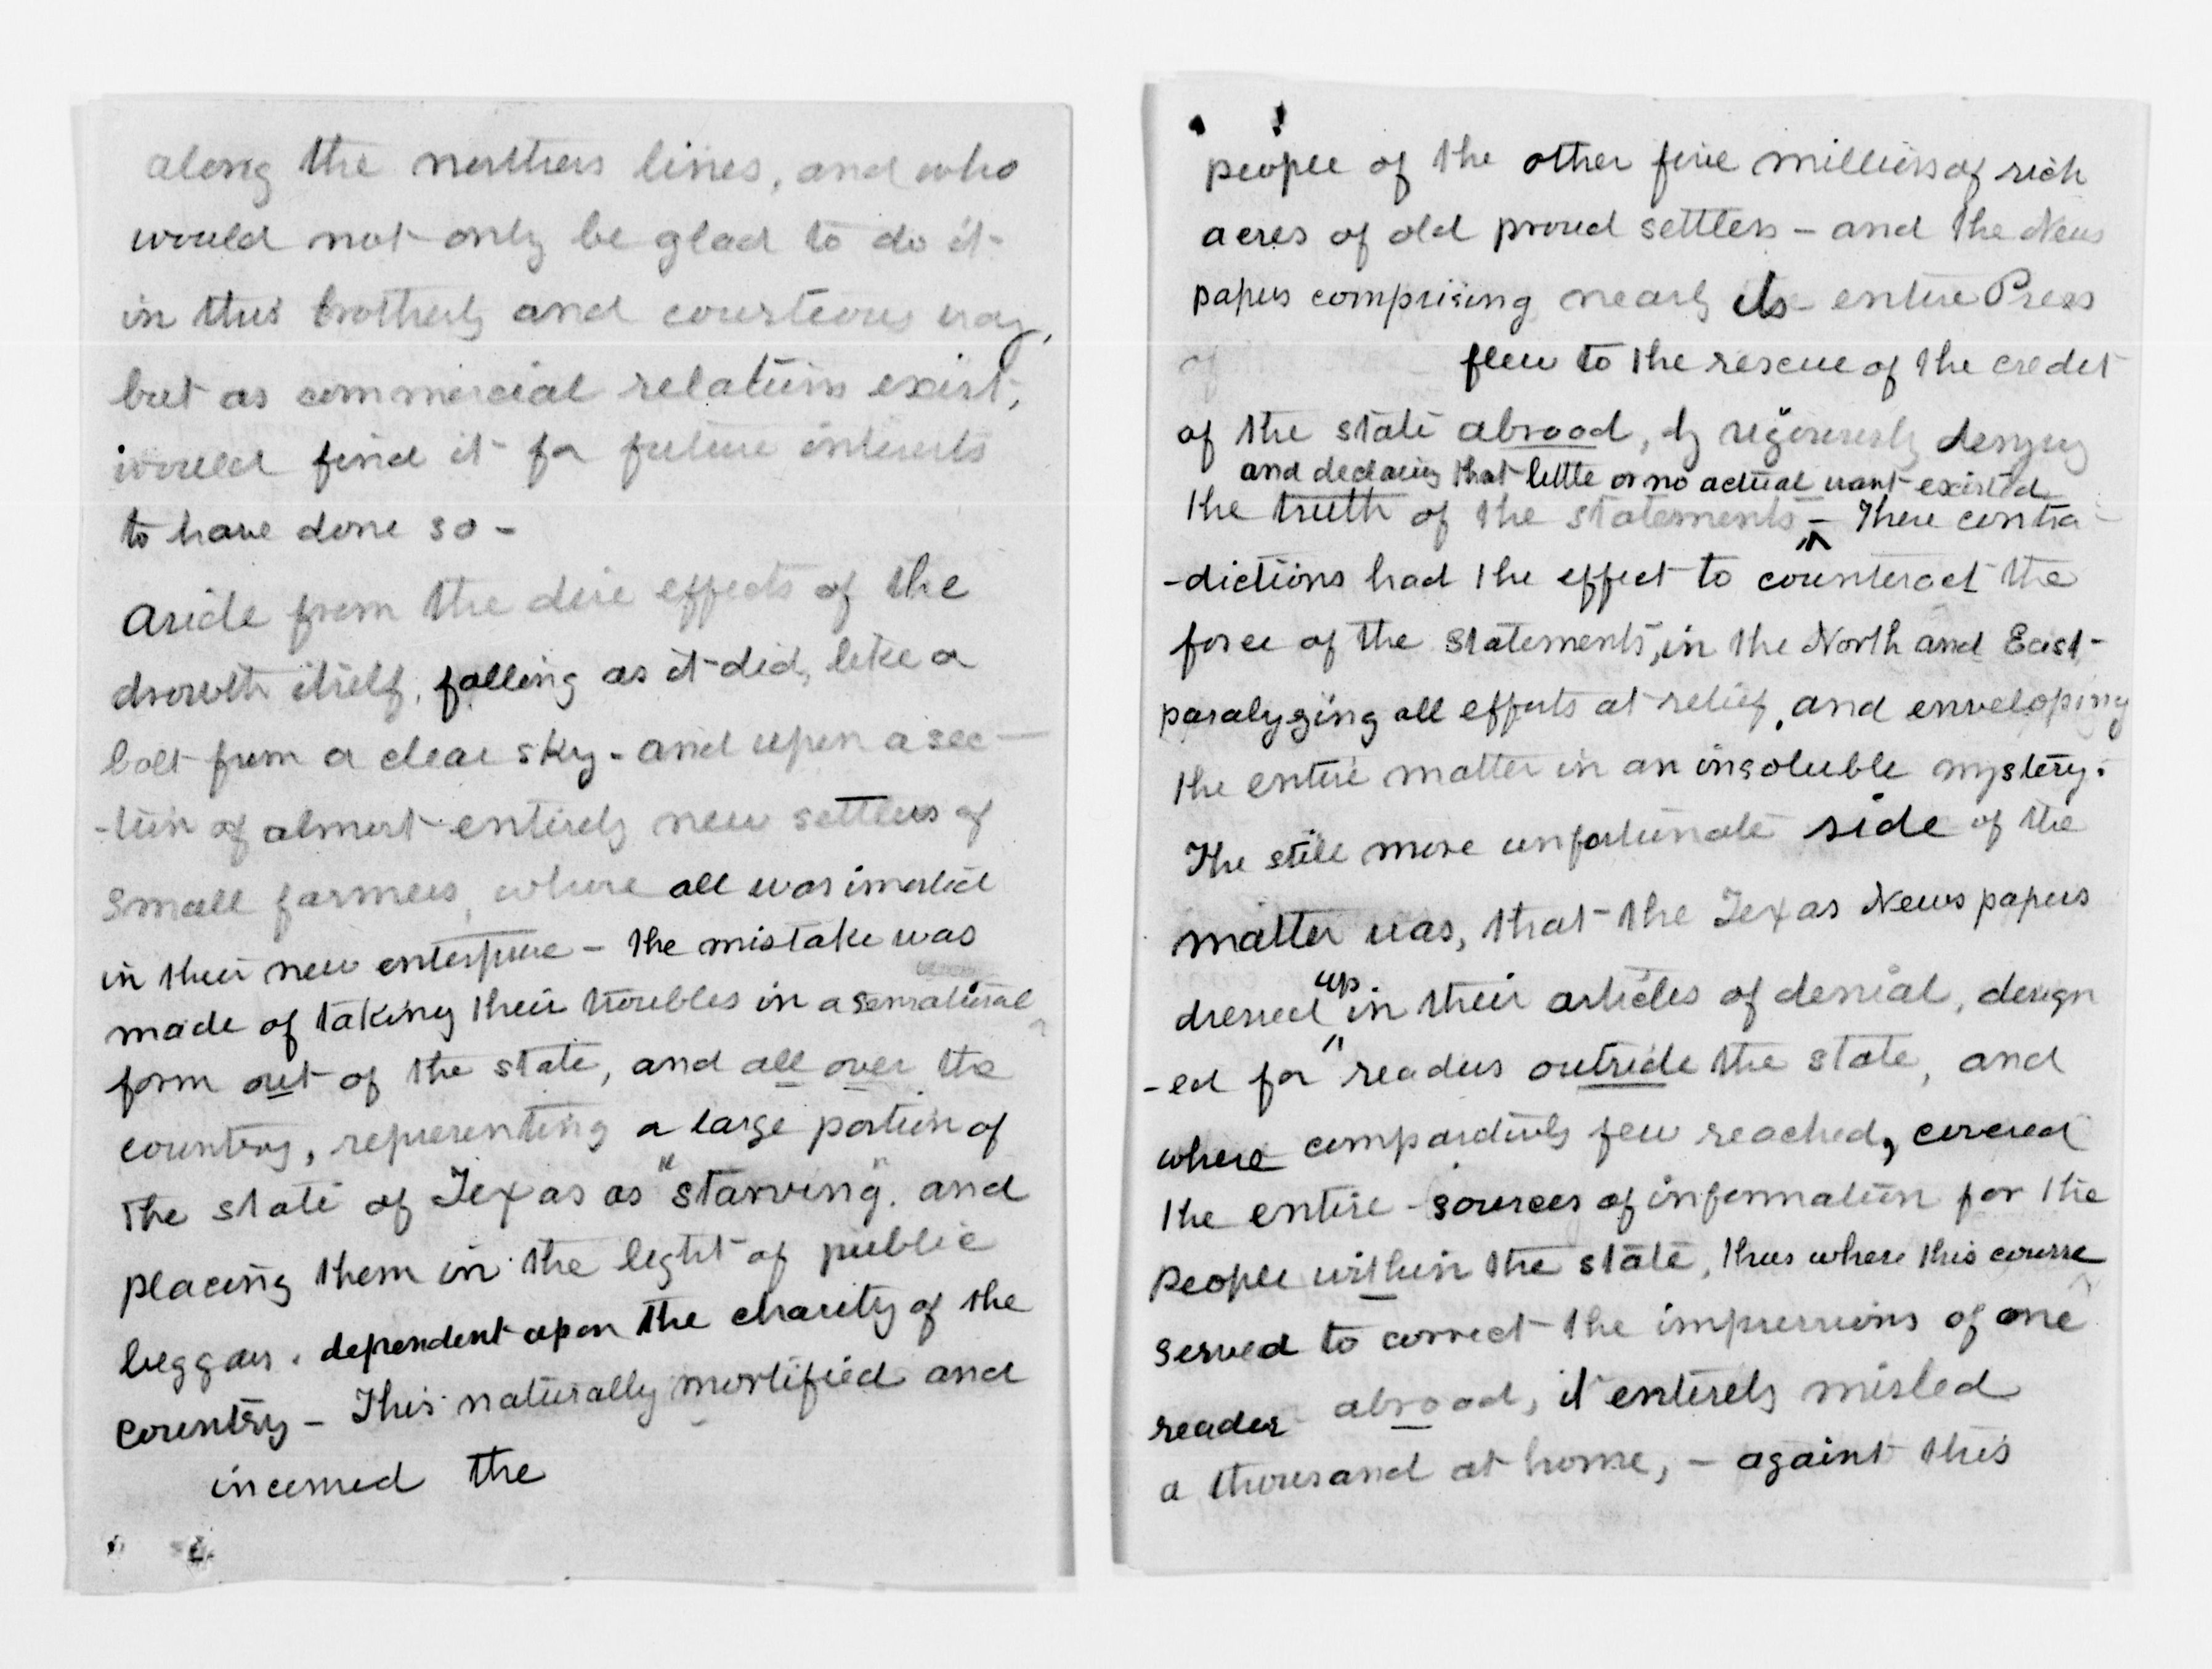 along the northern lines, and who
would not only be glad to do it
in this brotherly and courteous way,
but as commercial relations exist,
would find it for future interests
to have done so -
Aside from the dire effects of the
drowth itself, falling as it did, like a
bolt from a clear sky - and upon a sec-
-tion of almost entirely new settlers of
small farmers, where all was invested
in their new enterprise - the mistake was
made of taking their troubles in a
form out of the state, and all over the
country, representing a large portion of
the state of Texas as "starving", and
placing them in the light of public
beggars, dependent upon the charity of the
country - This naturally mortified and
incensed the
people of the other five millions of rich
acres of old proud settlers - and the News
papers comprising nearly its entire Press
of flew to the rescue of the credit
of the state abroad, by vigorously denying
and declaring that little or no actual want existed
the truth of the statements - These contra-
-dictions had the effect to counteract the
force of the statements, in the North and East -
paralyzing all efforts at relief, and enveloping
the entire matter in an insoluble mystery.
The still more unfortunate side of the
matter was, that the Texas News papers
dressed up in their articles of denial, design
-ed for readers outside the state, and
where comparatively few reached, covered
the entire sources of information for the
people within the state, thus where this course
served to correct the impressions of one
reader abroad, it entirely misled
a thousand at home, - against this